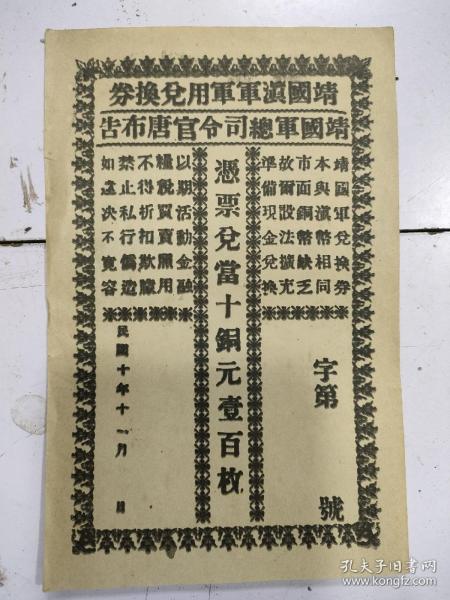 靖國滇軍軍用兌換券
靖國軍總司令官唐布告
靖國軍兌換券
本與滇幣相同
市面銅幣缺乏
故爾設法擴充
準備現金兌換
字第 號
憑票兌當十銅元壹百枚
以期活動金融
糧稅買賣照用
不得折扣欺朦
禁止私行僞造
如違决不寬容
民國十年十一月 日
孔夫子旧书网
www.kongfz.com